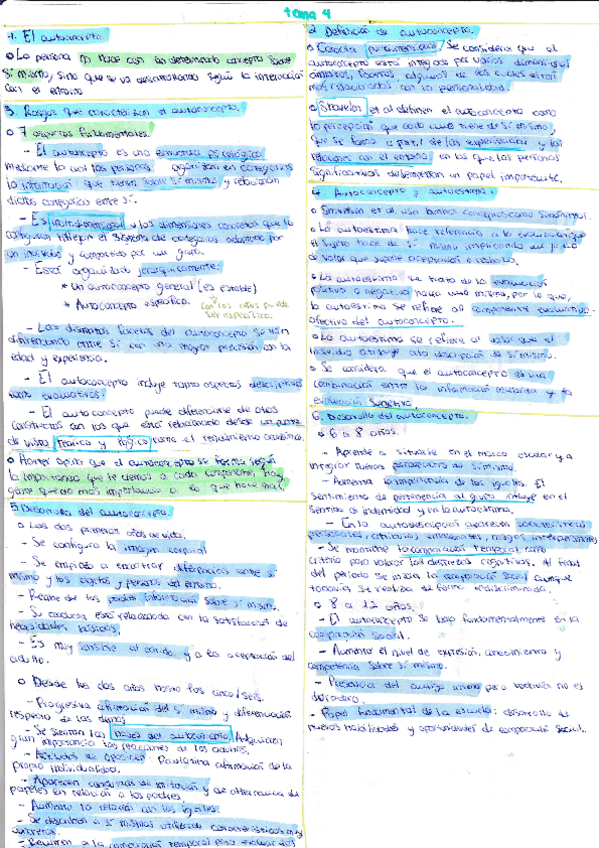 tema 4
1. El autoconcepto
o La persona no nace con un determinado concepto sobre
sí mismo, sino que se va desarrollando según la interacción
con el entorno
3. Rasgos que caracterizan el autoconcepto.
o 7 aspectos fundamentales.
- El autoconcepto es una estructura psicológica
mediante la cual las personas organizan en categorías
la información que tienen sobre sí mismos y relacionan
dichas categorías entre sí.
- Es multidimensional y las dimensiones concretas que lo
configuran reflejan el sistema de categorías adoptado por
un individuo y compartido por un grupo.
- Están organizadas jerárquicamente:
* Un autoconcepto general (es estable)
* Autoconcepto específico.
con los años puede
ser específico.
- Las distintas facetas del autoconcepto se van
diferenciando entre sí con una mayor precisión con la
edad y experiencia.
- El autoconcepto incluye tanto aspectos descriptivos
como evaluativos.
- El autoconcepto puede diferenciarse de otros
constructos con los que está relacionado desde un punto
de vista teórico y lógico como el rendimiento académico.
que el autoconcepto se forma según
la importancia que le demos a cada componente, hay
gente que da más importancia a lo que hace mal.
5. Desarrollo del autoconcepto.
o Los dos primeros años de vida.
- Se configura la imagen corporal
- Se empieza a encontrar diferencias entre sí
mismo y los objetos y personas del entorno.
- Recibe de los padres información sobre sí mismo.
- Su conducta está relacionada con la satisfacción de
necesidades básicas.
- Es muy sensible al sonido y a la aceptación del
adulto.
o Desde los dos años hasta los cinco/seis.
- Progresiva afirmación del sí mismo y diferenciación
respecto de los demás
- Se sientan las bases del autoconcepto. Adquieren
gran importancia las reacciones de los adultos.
- Actitudes de oposición. Paulatina afirmación de la
propia individualidad.
- Aparecen conductas de imitación y de alternancia de
papeles en relación a los padres.
- Aumenta la relación con los iguales.
- Se describen a sí mismos utilizando características muy
concretas.
- Recurren a la comparación temporal para evaluar sus
2. Definición de autoconcepto.
o Carácter multidimensional. Se considera que el
autoconcepto está integrado por varias dimensiones,
ámbitos, facetas, algunas de las cuales están
más relacionadas con la personalidad.
o Shavelson et al definen el autoconcepto como
la percepción que cada uno tiene de sí mismo,
que se forma a partir de las experiencias y las
relaciones con el entorno, en las que las personas
significativas desempeñan un papel importante.
4. Autoconcepto y autoestima.
o et al usa ambos conceptos como sinónimos.
o La autoestima hace referencia a la evaluación que
el sujeto hace de sí mismo implicando un juicio
de valor que supone aceptación o rechazo.
o La autoestima se trata de la evaluación
positiva o negativa hacia uno mismo, por lo que,
la autoestima se refiere al componente evaluativo-
afectivo del autoconcepto.
o La autoestima se refiere al valor que el
individuo atribuye a la descripción de sí mismo.
o Se considera que el autoconcepto es una
combinación entre la información recibida y la
evaluación subjetiva.
6. Desarrollo del autoconcepto.
o 6 a 8 años.
- Aprende a situarse en el marco escolar y a
integrar nuevas percepciones de sí mismo.
- Aumenta la importancia de los iguales. El
sentimiento de pertenencia al grupo influye en el
sentido de identidad y en la autoestima.
- En la autodescripción aparecen características
personales, actitudes emocionales, rasgos interpersonales
- Se mantiene la comparación temporal como
criterio para valorar las destrezas cognitivas. Al final
del periodo se inicia la comparación social aunque
todavía se realiza de forma indiscriminada.
o 8 a 12 años.
- El autoconcepto se basa fundamentalmente en la
comparación social.
- Aumenta el nivel de expresión, conocimiento y
competencia sobre sí mismo.
- Presencia del amigo íntimo pero todavía no es
duradera.
- Papel fundamental de la escuela: desarrollo de
nuevas habilidades y oportunidades de comparación social.